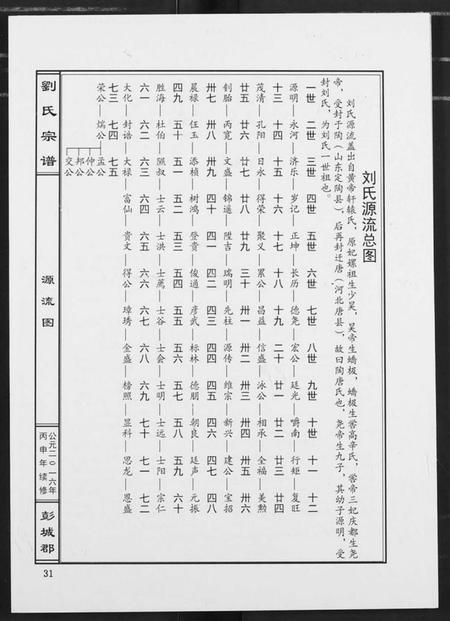 刘氏源流总图
刘氏源流盖出自黄帝轩辕氏，原妃嫘祖生少昊，昊帝生蟜极，蟜极生喾高辛氏，喾帝三妃庆都生尧
帝，受封于陶（山东定陶县），后再封迁唐（河北唐县），故曰陶唐氏也，尧帝生九子，其幼子源明，受
封刘氏，为刘氏一世祖也。
一世 二世 三世 四世 五世 六世 七世 八世 九世 十世 十一 十二
源明—永河—济乐—岁记—正坤—长历—德尧—宏公—廷光—嚼南—行矩—复旺
十三 十四 十五 十六 十七 十八 十九 二十 廿一 廿二 廿三 廿四
茂清—孔阳—日永—得荣—聚义—累公—昌益—信盛—泳公—相承—全福—美勲
廿五 廿六 廿七 廿八 廿九 三十 卅一 卅二 卅三 卅四 卅五 卅六
钊胎—丙宽—文盛—锦遥—陞吉—瑞明—先柱—源传—维宗—新兴—建公—宝招
卅七 卅八 卅九 四十 四一 四二 四三 四四 四五 四六 四七 四八
晨禄—任玉—添桢—树鸿—登贵—俊通—彦武—标林—德朋—朝良—廷声—元振
四九 五十 五一 五二 五三 五四 五五 五六 五七 五八 五九 六十
胜海—杜伯—隰叔—士云—士洪—士蒍—士谷—士会—士明—士远—士阳—宗仁
六一 六二 六三 六四 六五 六六 六七 六八 六九 七十 七一 七二
大化—封诰—大禄—富仙—贵文—得公—璋琇—金盛—榜照—显科—思龙—恩盛
七三 七四 七五
荣公—煓公—孟公
仲公
邦公
交公
劉氏宗谱
源流图
公元二〇一六年
丙申年续修
彭城郡
31